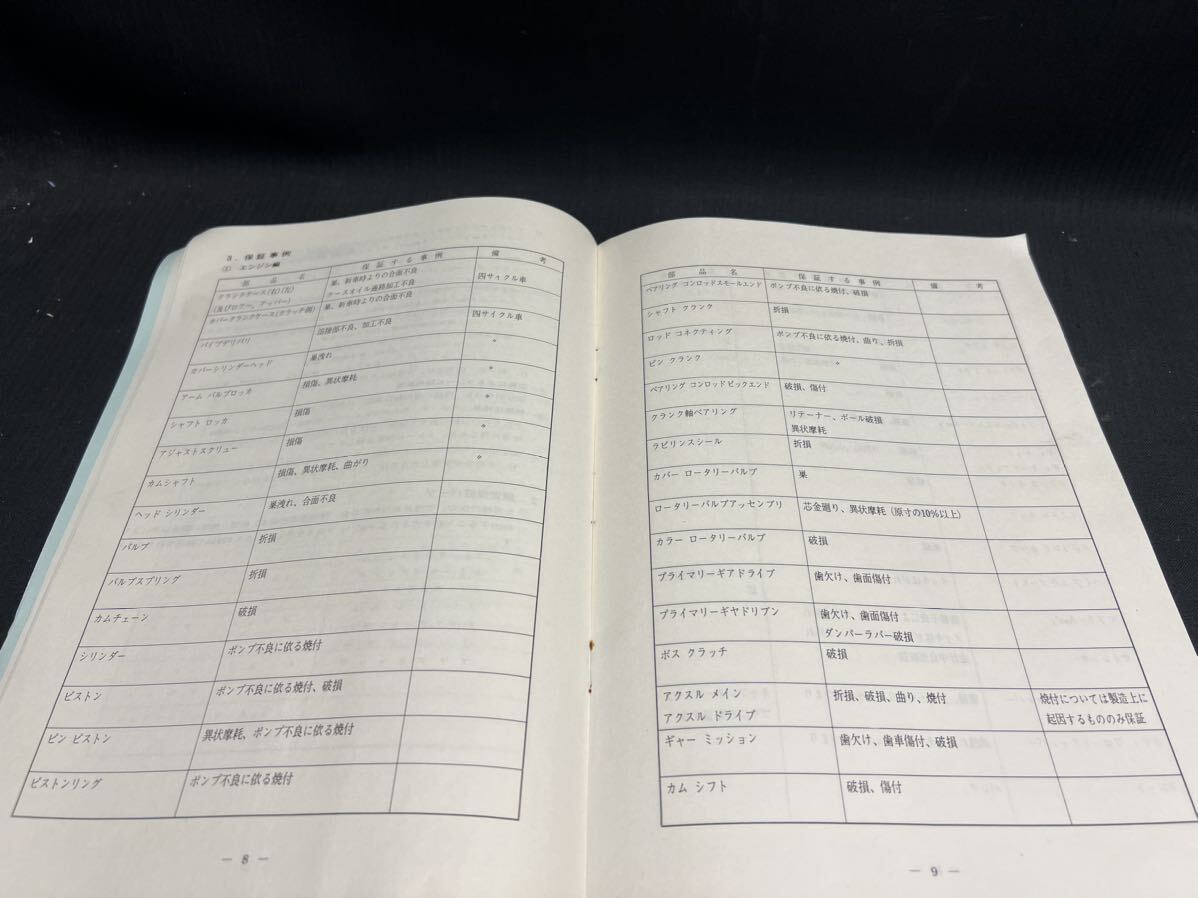 3. 保証事例
① エンジン編
部品名 保証する事例 備考
クランクケース(右)(左) 巣、新車時よりの合面不良 四サイクル車
(及びロアー、アッパー) ケースオイル通路加工不良
カバークランクケース(クラッチ側) 巣、新車時よりの合面不良
パイプデリバリ 溶接部不良、加工不良 四サイクル車
カバーシリンダーヘッド 巣洩れ 〃
アーム バルブロッカ 損傷、異状摩耗 〃
シャフト ロッカ 損傷 〃
アジャストスクリュー 損傷 〃
カムシャフト 損傷、異状摩耗、曲がり 〃
ヘッド シリンダー 巣洩れ、合面不良
バルブ 折損
バルブスプリング 折損
カムチェーン 破損
シリンダー ポンプ不良に依る焼付
ピストン ポンプ不良に依る焼付、破損
ピン ピストン 異状摩耗、ポンプ不良に依る焼付
ピストンリング ポンプ不良に依る焼付
— 8 —
部品名 保証する事例 備考
ベアリング コンロッドスモールエンド ポンプ不良に依る焼付、破損
シャフト クランク 折損
ロッド コネクティング ポンプ不良に依る焼付、曲り、折損
ピン クランク 〃
ベアリング コンロッドビックエンド 破損、傷付
クランク軸ベアリング リテーナー、ボール破損
異状摩耗
ラビリンスシール 折損
カバー ロータリーバルブ 巣
ロータリーバルブアッセンブリ 芯金廻り、異状摩耗(原寸の10%以上)
カラー ロータリーバルブ 破損
プライマリーギアドライブ 歯欠け、歯面傷付
プライマリーギヤドリブン 歯欠け、歯面傷付
ダンパーラバー破損
ボス クラッチ 破損
アクスル メイン 折損、破損、曲り、焼付 焼付については製造上に
アクスル ドライブ 起因するもののみ保証
ギャー ミッション 歯欠け、歯車傷付、破損
カム シフト 破損、傷付
— 9 —